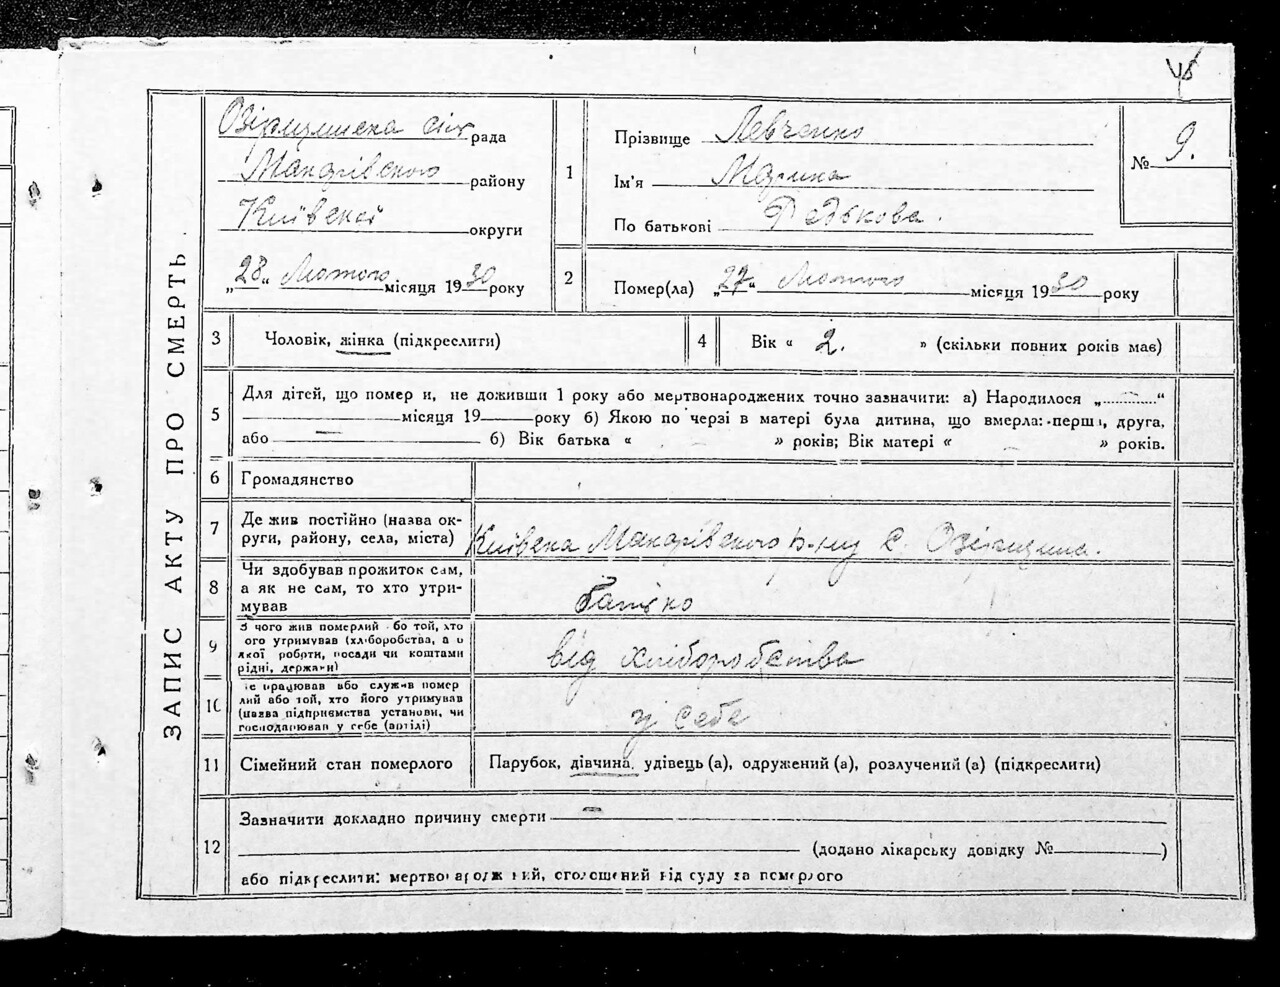 ЗАПИС АКТУ ПРО СМЕРТЬ
Озірщинська сіл рада
Макарівського району
Київської округи
„28“ Лютого місяця 1930 року
1
Прізвище Левченко
Ім'я Марина
По батькові Федькова.
№ 9.
2
Помер(ла) „27“ Лютого місяця 1930 року
3 Чоловік, жінка (підкреслити)
4 Вік « 2. » (скільки повних років має)
5 Для дітей, що помер и, не доживши 1 року або мертвонароджених точно зазначити: а) Народилося „ “
місяця 19 року б) Якою по черзі в матері була дитина, що вмерла: перша, друга,
або — б) Вік батька « » років; Вік матері « » років.
6 Громадянство
7 Де жив постійно (назва ок-
руги, району, села, міста) Київська Макарівського р-ну с. Озірщина.
8 Чи здобував прожиток сам,
а як не сам, то хто утри-
мував Батько
9 З чого жив померлий або той, хто
ого утримував (хліборобства, а о
якої роботи, посади чи коштами
рідні, держави) від хліборобства
10 е працював або служив помер
лий або той, хто його утримував
(назва підприємства установи, чи
господарював у себе (артілі) у себе
11 Сімейний стан померлого Парубок, дівчина, удівець (а), одружений (а), розлучений (а) (підкреслити)
12 Зазначити докладно причину смерти —
(додано лікарську довідку № )
або підкреслити: мертвонароджений, оголошений від суду за померлого